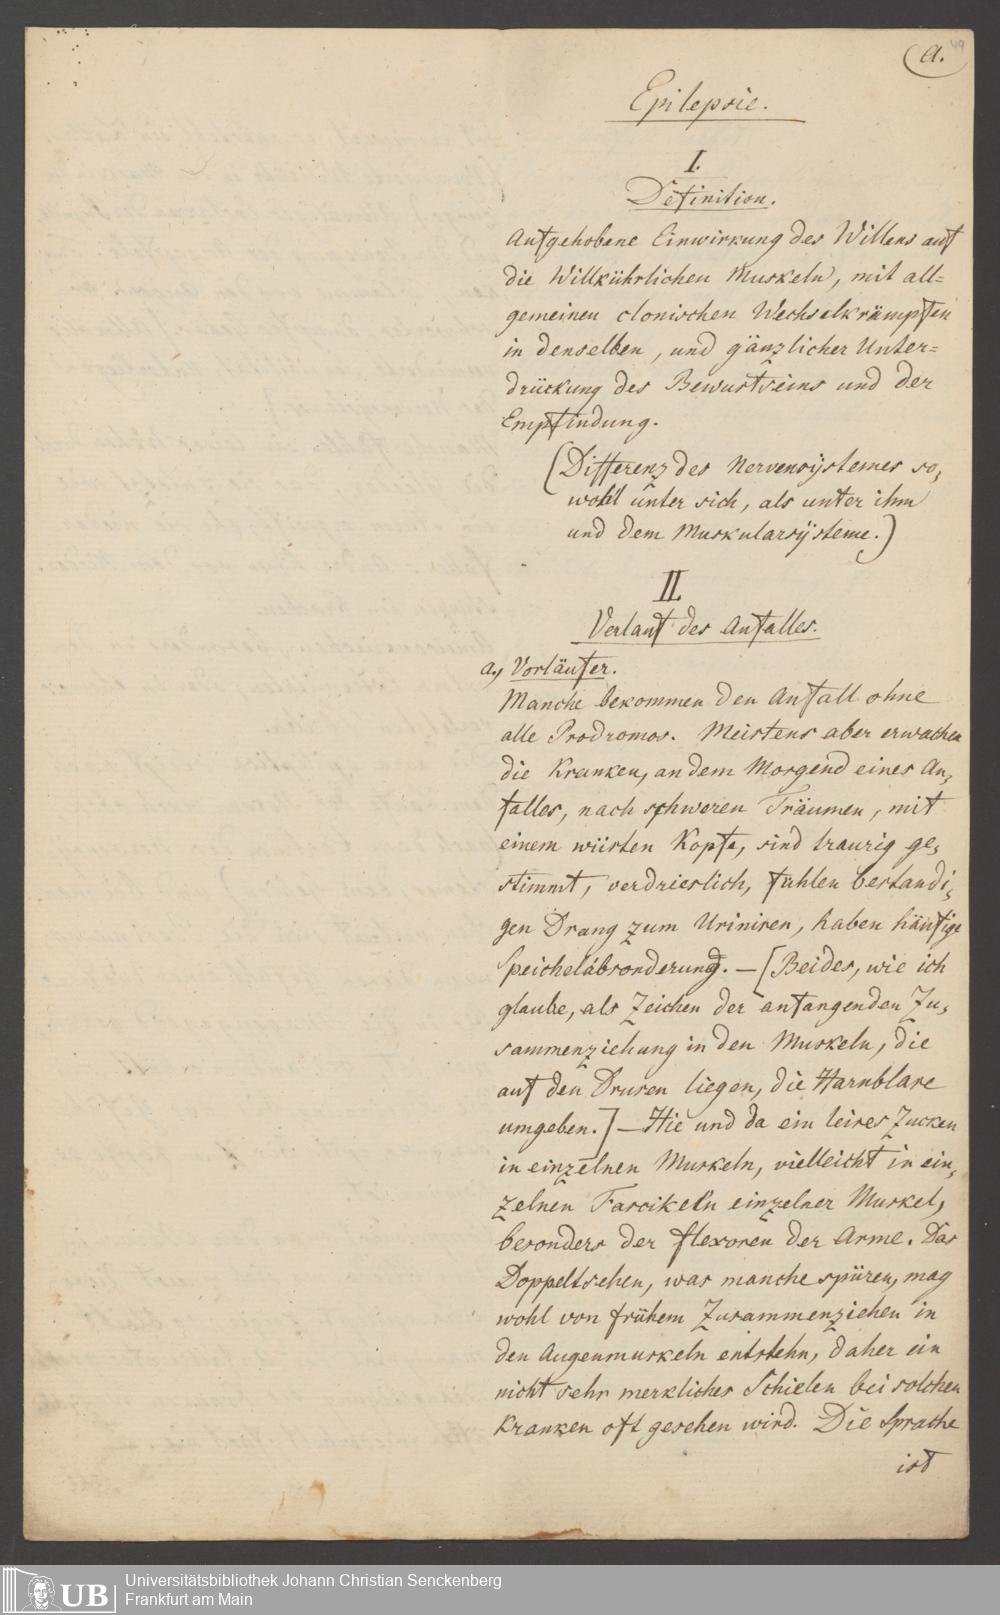 a. 49
Epilepsie.
I.
Definition.
Aufgehobene Einwirkung des Willens auf
die Willkührlichen Muskeln, mit all=
gemeinen clonischen Wechselkrämpfen
in denselben, und gänzlicher Unter=
drückung des Bewustseins und der
Empfindung.
(Differenz des Nervensÿstemes so,
wohl unter sich, als unter ihm
und dem Muskularsÿsteme.)
II.
Verlauf des Anfalles.
a, Vorläufer.
Manche bekommen den Anfall ohne
alle Prodromos. Meistens aber erwachen
die Kranken, an dem Morgend eines An,
falles, nach schweren Träumen, mit
einem wüsten Kopfe, sind traurig ge,
stimmt, verdrieslich, fühlen bestandi,
gen Drang zum Uriniren, haben häufige
Speichelabsonderung. — [Beides, wie ich
glaube, als Zeichen der anfangenden Zu,
sammenziehung in den Muskeln, die
auf den Drusen liegen, die Harnblase
umgeben.] — Hie und da ein leises Zucken
in einzelnen Muskeln, vielleicht in ein,
zelnen Fascikeln einzelner Muskel,
besonders der flexoren der Arme. Das
Doppeltsehen, was manche spüren, mag
wohl von frühem Zusammenziehen in
den Augenmuskeln entstehn, daher ein
nicht sehr merkliches Schielen bei solchen
Kranken oft gesehen wird. Die Sprache
ist
UB Universitätsbibliothek Johann Christian Senckenberg
Frankfurt am Main